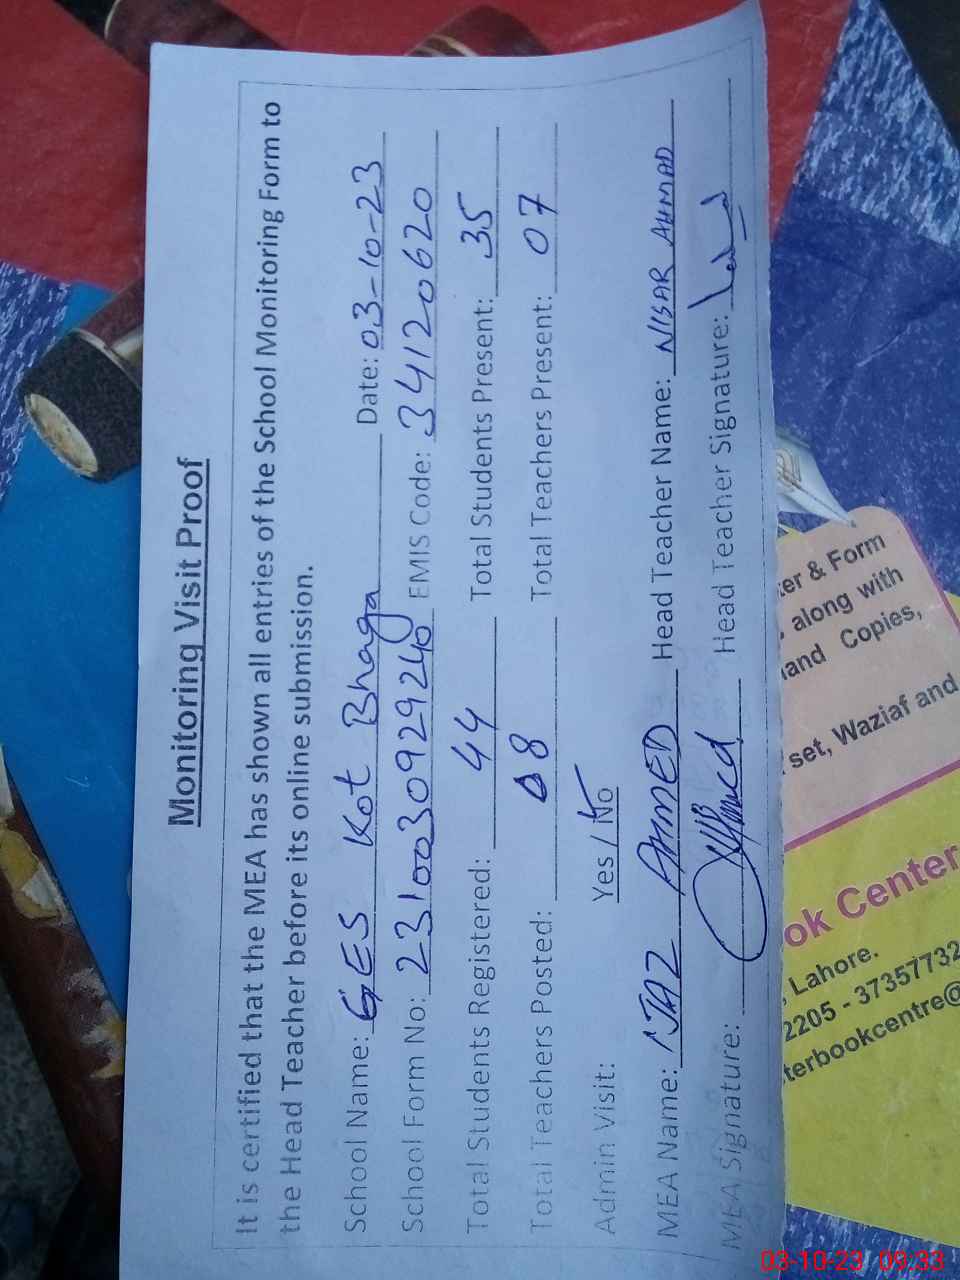 Monitoring Visit Proof
It is certified that the MEA has shown all entries of the School Monitoring Form to
the Head Teacher before its online submission.
School Name: GES Kot Bhaga Date: 03-10-23
School Form No: 231003092924o EMIS Code: 34120620
Total Students Registered: 44 Total Students Present: 35
Total Teachers Posted: 08 Total Teachers Present: 07
Admin Visit: Yes / No
MEA Name: IJAZ AHMED Head Teacher Name: NISAR AHMAD
MEA Signature: Head Teacher Signature:
er & Form
along with
and Copies,
set, Waziaf and
ok Center
, Lahore.
2205 - 37357732
terbookcentre@
03-10-23 09:33